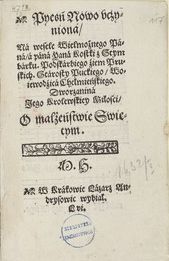 Pyesń Nowo vczy-
niona/
Na wesele Wielmożnego Pá-
ná/ á páná Janá Kostki z Sztym
bárku. Podskárbiego ziem Pru-
skich. Stárosty Puckiego/ Wo-
iewodzicá Chełmieńskiego.
Dworzaniná
Jego Krolewskiey Miłości/
O małżeństwie Swię-
tym.
A. S.
W Krákowie Lázarz An-
drysowic wybiał.
Lvi.